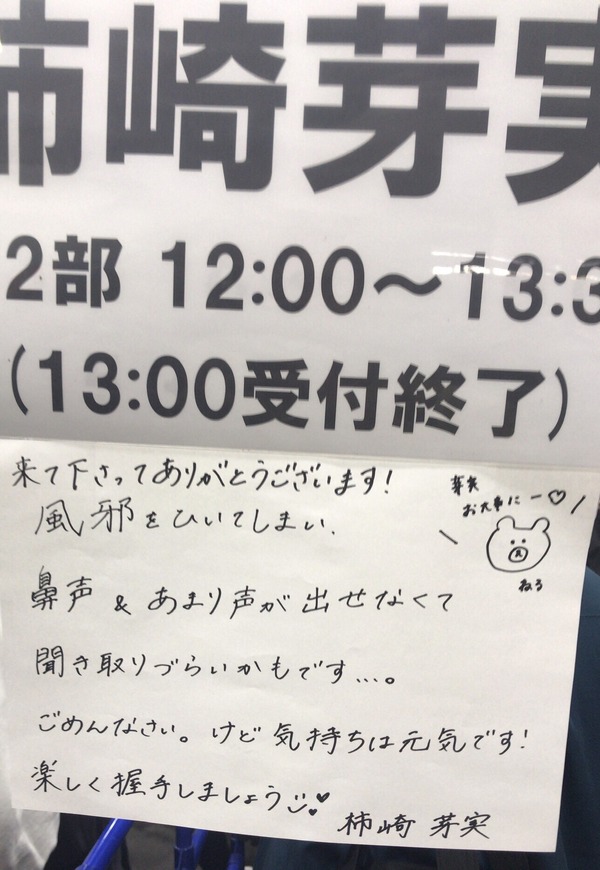 柿崎芽実
2部 12:00～13:3
(13:00受付終了)
来て下さってありがとうございます!
風邪をひいてしまい、
鼻声 & あまり声が出せなくて
聞き取りづらいかもです…。
ごめんなさい。けど気持ちは元気です!
楽しく握手しましょう
柿崎 芽実
芽実
お大事にー♡
ねる